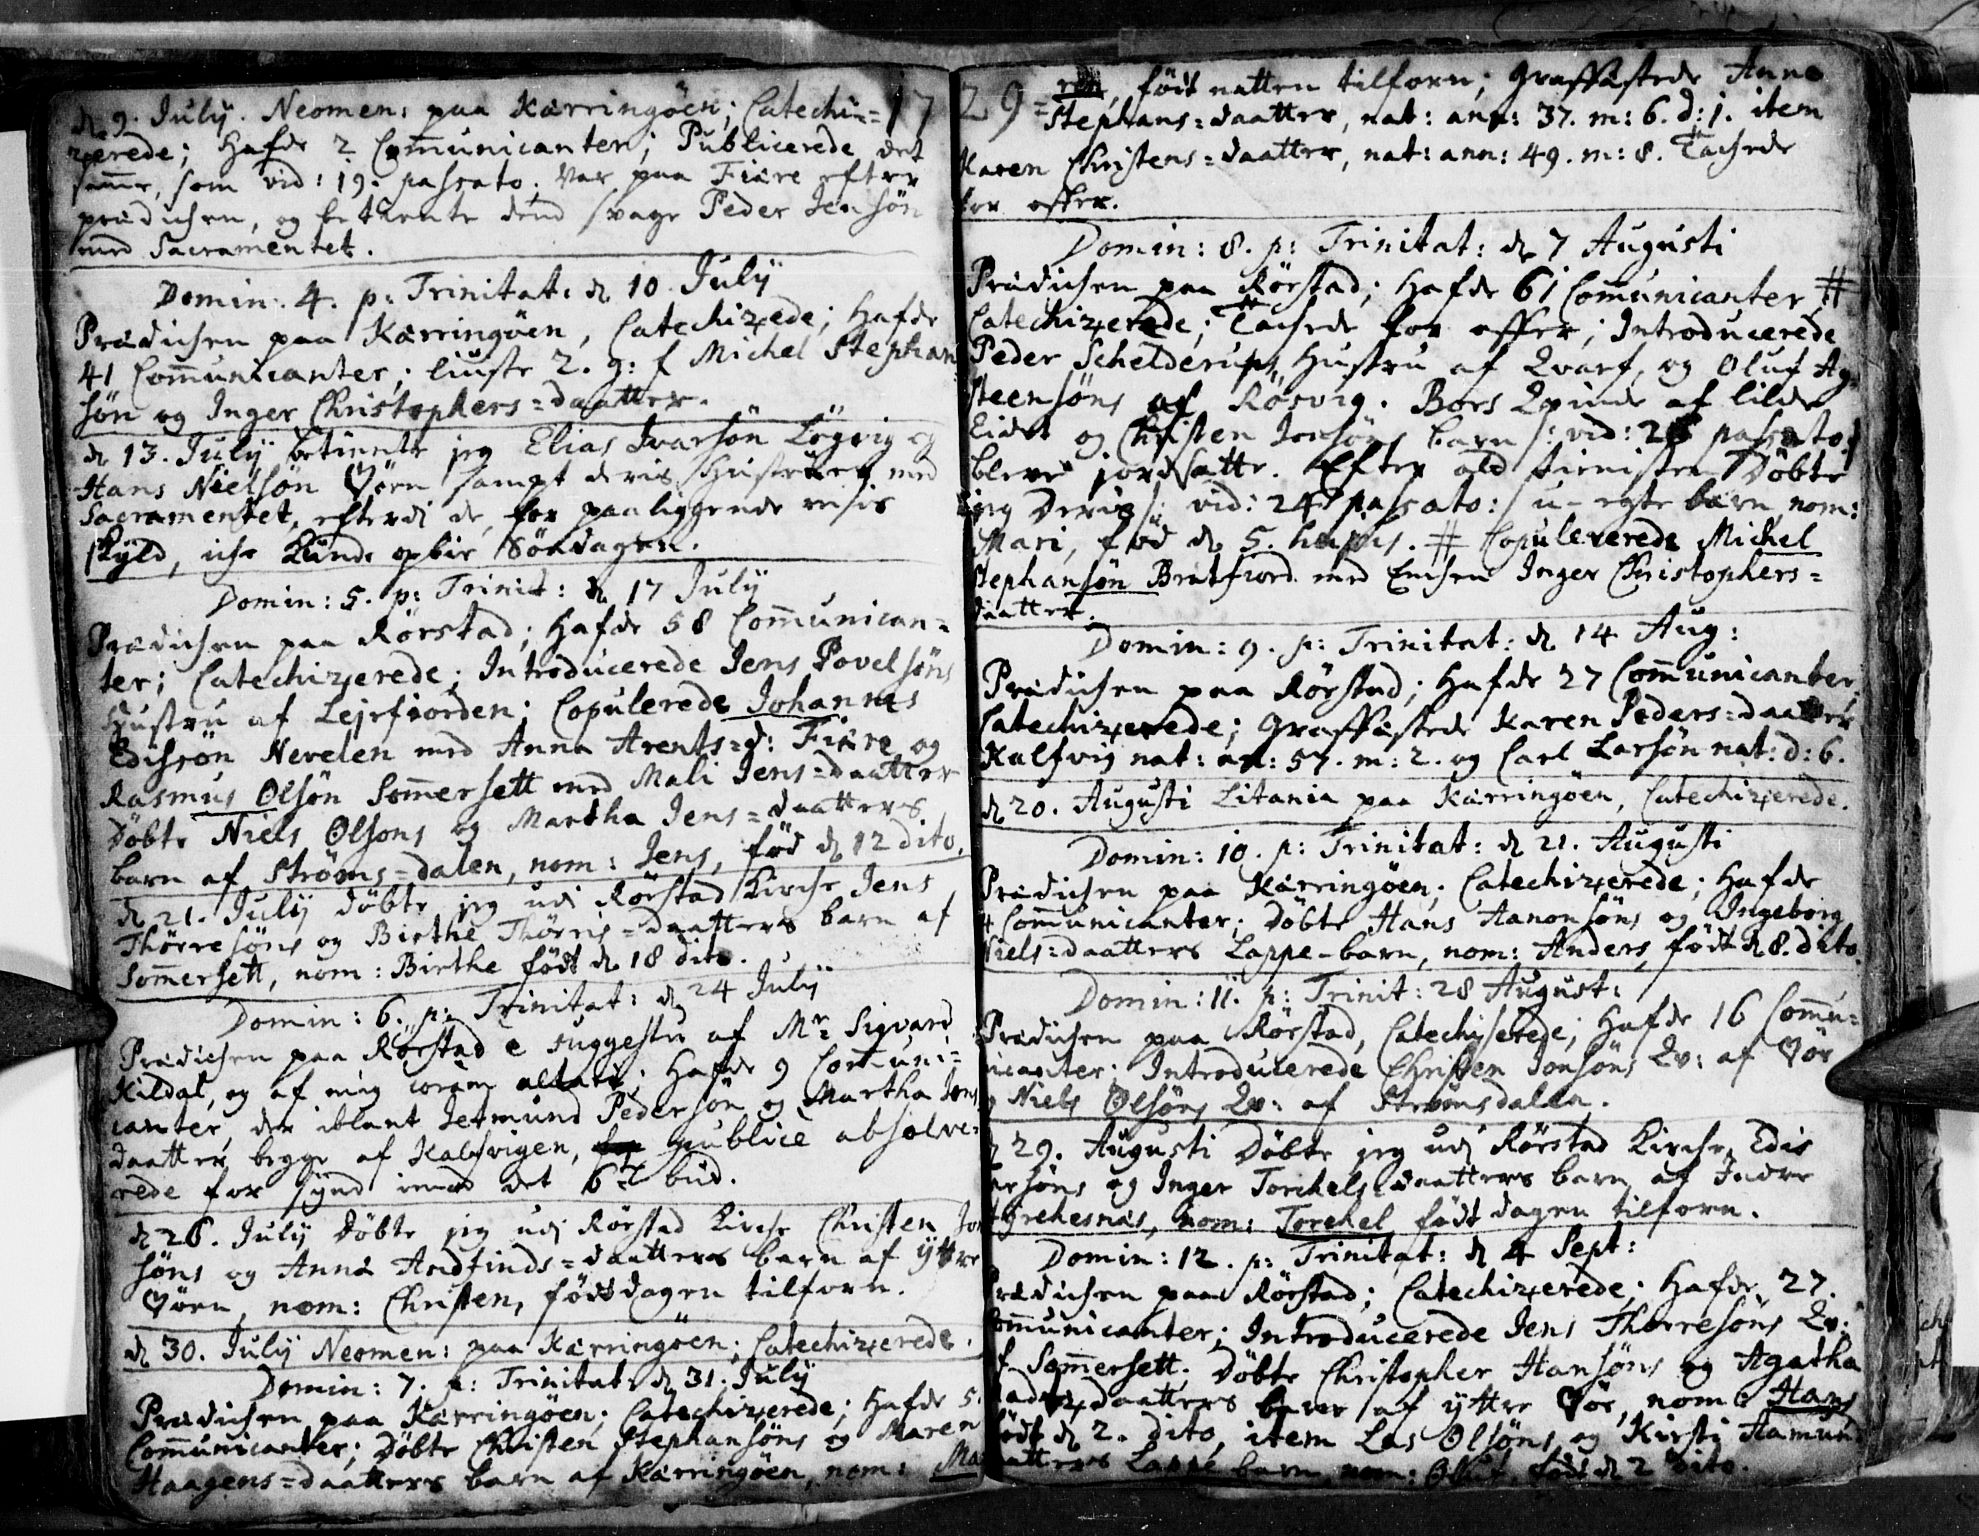 d. 9. July. Neomen: paa Kærringöen; Catechi= 17
zerede; Hafde 2 Communicanter; Publicerede det
samme, som vid: 19. passato. Var paa Fiære efter
prædichen, og betiente dend svage Peder Jensön
med Sacramentet.
Domin: 4. p: Trinitat: d. 10 July
Prædichen paa Kærringöen, Catechizerede; Hafde
41 Communicanter; liuste 2. g: f Michel Stephan
sön og Inger Christophers=daatter.
d. 13. July betiente jeg Elias Ivarsön Lögvig og
Hans Nielsön Vörn sampt deris Hustruer med
Sacramentet, efterdi de, for paaliggende reysis
skyld, iche kunde opbie Söndagen.
Domin: 5. p: Trinit: d. 17 July
Prædichen paa Rörstad; Hafde 58 Communican=
ter; Catechizerede; Introducerede Jens Povelsöns
Hustru af Lejrfiorden; Copulerede Johannes
Edissön Nevelen med Anna Arents=d: Fiære og
Rasmus Olsön Sommersett med Mali Jens=daatter
Döbte Niels Olsons og Martha Jens=daatters
barn af Ströms=dalen, nom: Jens, föd d. 12 dito.
d. 21. July döbte jeg udi Rörstad Kirche Jens
Thörresöns og Birthe Thörris=daatters barn af
Sommersett, nom: Birthe födt d. 18 dito.
Domin: 6. p: Trinitat: d. 24 July
Prædichen paa Rörstad e suggestu af Mr Sigvard
Kildal, og af mig coram altari; Hafde 9 Communi=
canter, der iblant Jetmund Pedersön og Martha Jens
daatter begge af Kalfvigen, publicè absolve=
rede for synd imod det 6te bud.
d. 26. July döbte jeg udi Rörstad Kirche Christen Jon
söns og Anna Andfinds=daatters barn af yttre
Vörn, nom: Christen, födt dagen tilforn.
d. 30. July Neomen: paa Kærringöen; Catechizerede.
Domin: 7. p: Trinitat: d. 31. July
Prædichen paa Kærringöen; Catechizerede; Hafde 5.
Communicanter; Döbte Christen Stephansöns og Maren
Haagens=daatters barn af Kærringöen, nom: Ma
29= ren, födt natten tilforn; Graffæstede Anne
Stephans=daatter, nat: ann: 37. m: 6. d: 1. item
Karen Christens=daatter, nat: ann: 49. m: 8. Tachede
for offer.
Domin: 8. p: Trinitat: d. 7 Augusti
Prædichen paa Rörstad; Hafde 61 Communicanter #
Catechizerede; Tachede for offer; Introducerede
Peder Schelderups Hustru af Qvarf, og Oluf Ag=
steensöns af Rösvig. Bors Qvinde af lilde
Eidet og Christen Jonsöns barn /: vid: 26 passato:/
bleve jordsatte. Efter all tienisten Döbte
jeg /: vid: 24 passato:/ u-egte barn, nom:
Mari, föd d. 5. hujus. # Copulerede Michel
Stephansön Bratfiord med Enchen Inger Christophers=
daatter.
Domin: 9. p: Trinitat: d. 14 Aug:
Prædichen paa Rörstad; Hafde 27 Communicanter
Catechizerede; Graffæstede Karen Peders=daatter
Kalfvig nat: an: 57. m: 2. og Carl Larsön nat: d: 6.
d. 20. Augusti Litania paa Kærringöen, Catechizerede.
Domin: 10. p: Trinitat: d. 21. Augusti
Prædichen paa Kærringöen; Catechizerede; Hafde
4 Communicanter; Döbte Hans Aanonsöns og Ingeborg
Niels=daatters Lappe-barn, nom: Anders, födt d. 8. dito.
Domin: 11. p: Trinit: 28 August:
Prædichen paa Rörstad, Catechiserede; Hafde 16 Commu=
nicanter; Introducerede Christen Jonsöns Qv: af Vör
og Niels Olsöns Qv: af Strömsdalen.
d. 29. Augusti Döbte jeg udi Rörstad Kirche Edis
ersöns og Inger Torchels=daatters barn af Indre
nom: Torchel födt dagen tilforn.
Domin: 12. p: Trinitat: d. 4 Sept:
Prædichen paa Rörstad; Catechizerede; Hafde 27.
Communicanter; Introducerede Jens Thorresöns Qv:
af Sommersett. Döbte Christopher Hansöns og Agatha
daatters barn af yttre Vör, nom: Hans,
födt d. 2. dito, item Las Olsöns og Kirsti Aamun
daatters Lappe barn, nom: Oluf, födt d. 2 dito.